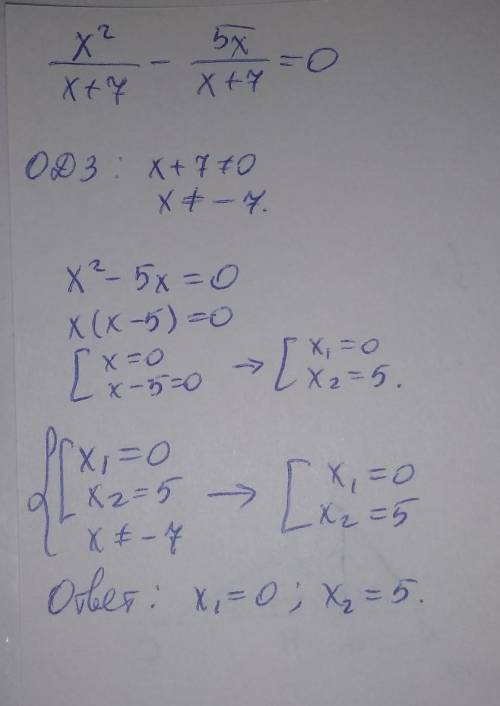 x²/(x+7) − 5x/(x+7) = 0
ОДЗ: x+7≠0
x≠−7.
x²−5x=0
x(x−5)=0
[x=0 → [x₁=0
x−5=0 x₂=5.
{[x₁=0 → [x₁=0
x₂=5 x₂=5
x≠−7
Ответ: x₁=0; x₂=5.